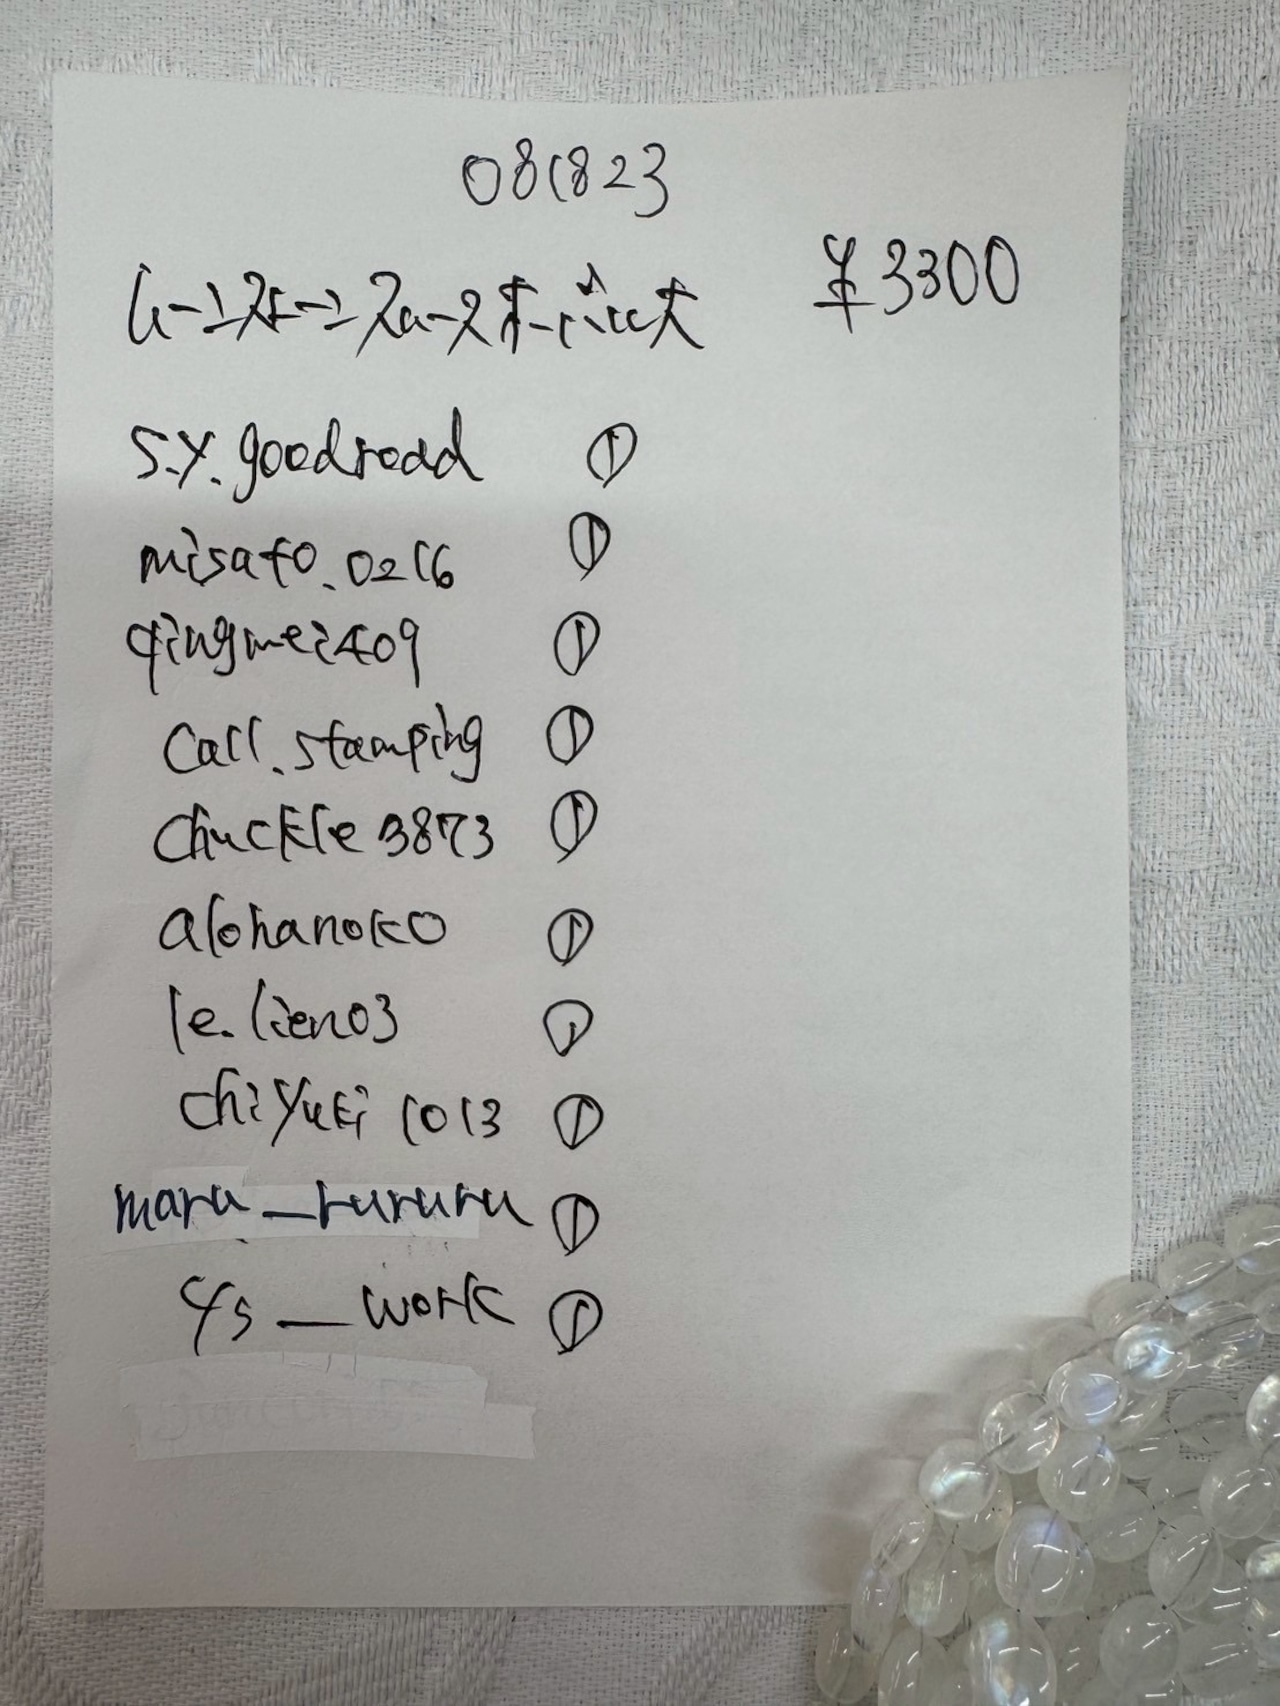 081823
¥3300
S.y.goodroad ①
misato.0216 ①
qingmei409 ①
Call.stamping ①
Chuckle3873 ①
alohanoko ①
le.lien03 ①
chiyuki1013 ①
maru_rururu ①
ys_work ①